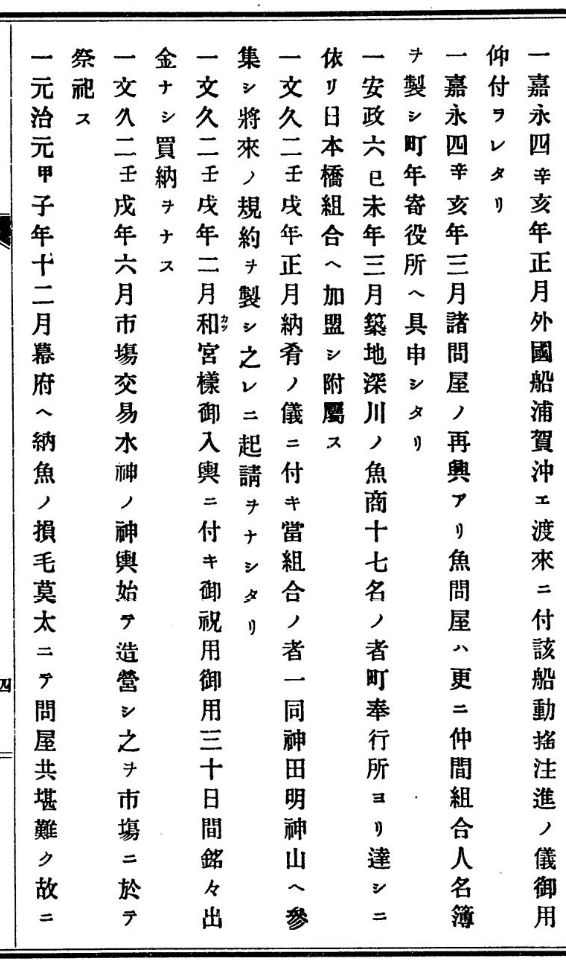 一嘉永四辛亥年正月外國船浦賀沖エ渡來ニ付該船動搖注進ノ儀御用
仰付ヲレタリ
一嘉永四辛亥年三月諸問屋ノ再興アリ魚問屋ハ更ニ仲間組合人名簿
ヲ製シ町年寄役所ヘ具申シタリ
一安政六巳未年三月築地深川ノ魚商十七名ノ者町奉行所ヨリ達シニ
依リ日本橋組合ヘ加盟シ附屬ス
一文久二壬戌年正月納肴ノ儀ニ付キ當組合ノ者一同神田明神山ヘ參
集シ將來ノ規約ヲ製シ之レニ起請ヲナシタリ
一文久二壬戌年二月和宮樣御入輿ニ付キ御祝用御用三十日間銘々出
カツ
金ナシ買納ヲナス
一文久二壬戌年六月市塲交易水神ノ神輿始テ造營シ之ヲ市塲ニ於テ
祭祀ス
一元治元甲子年十二月幕府ヘ納魚ノ損毛莫太ニテ問屋共堪難ク故ニ
四